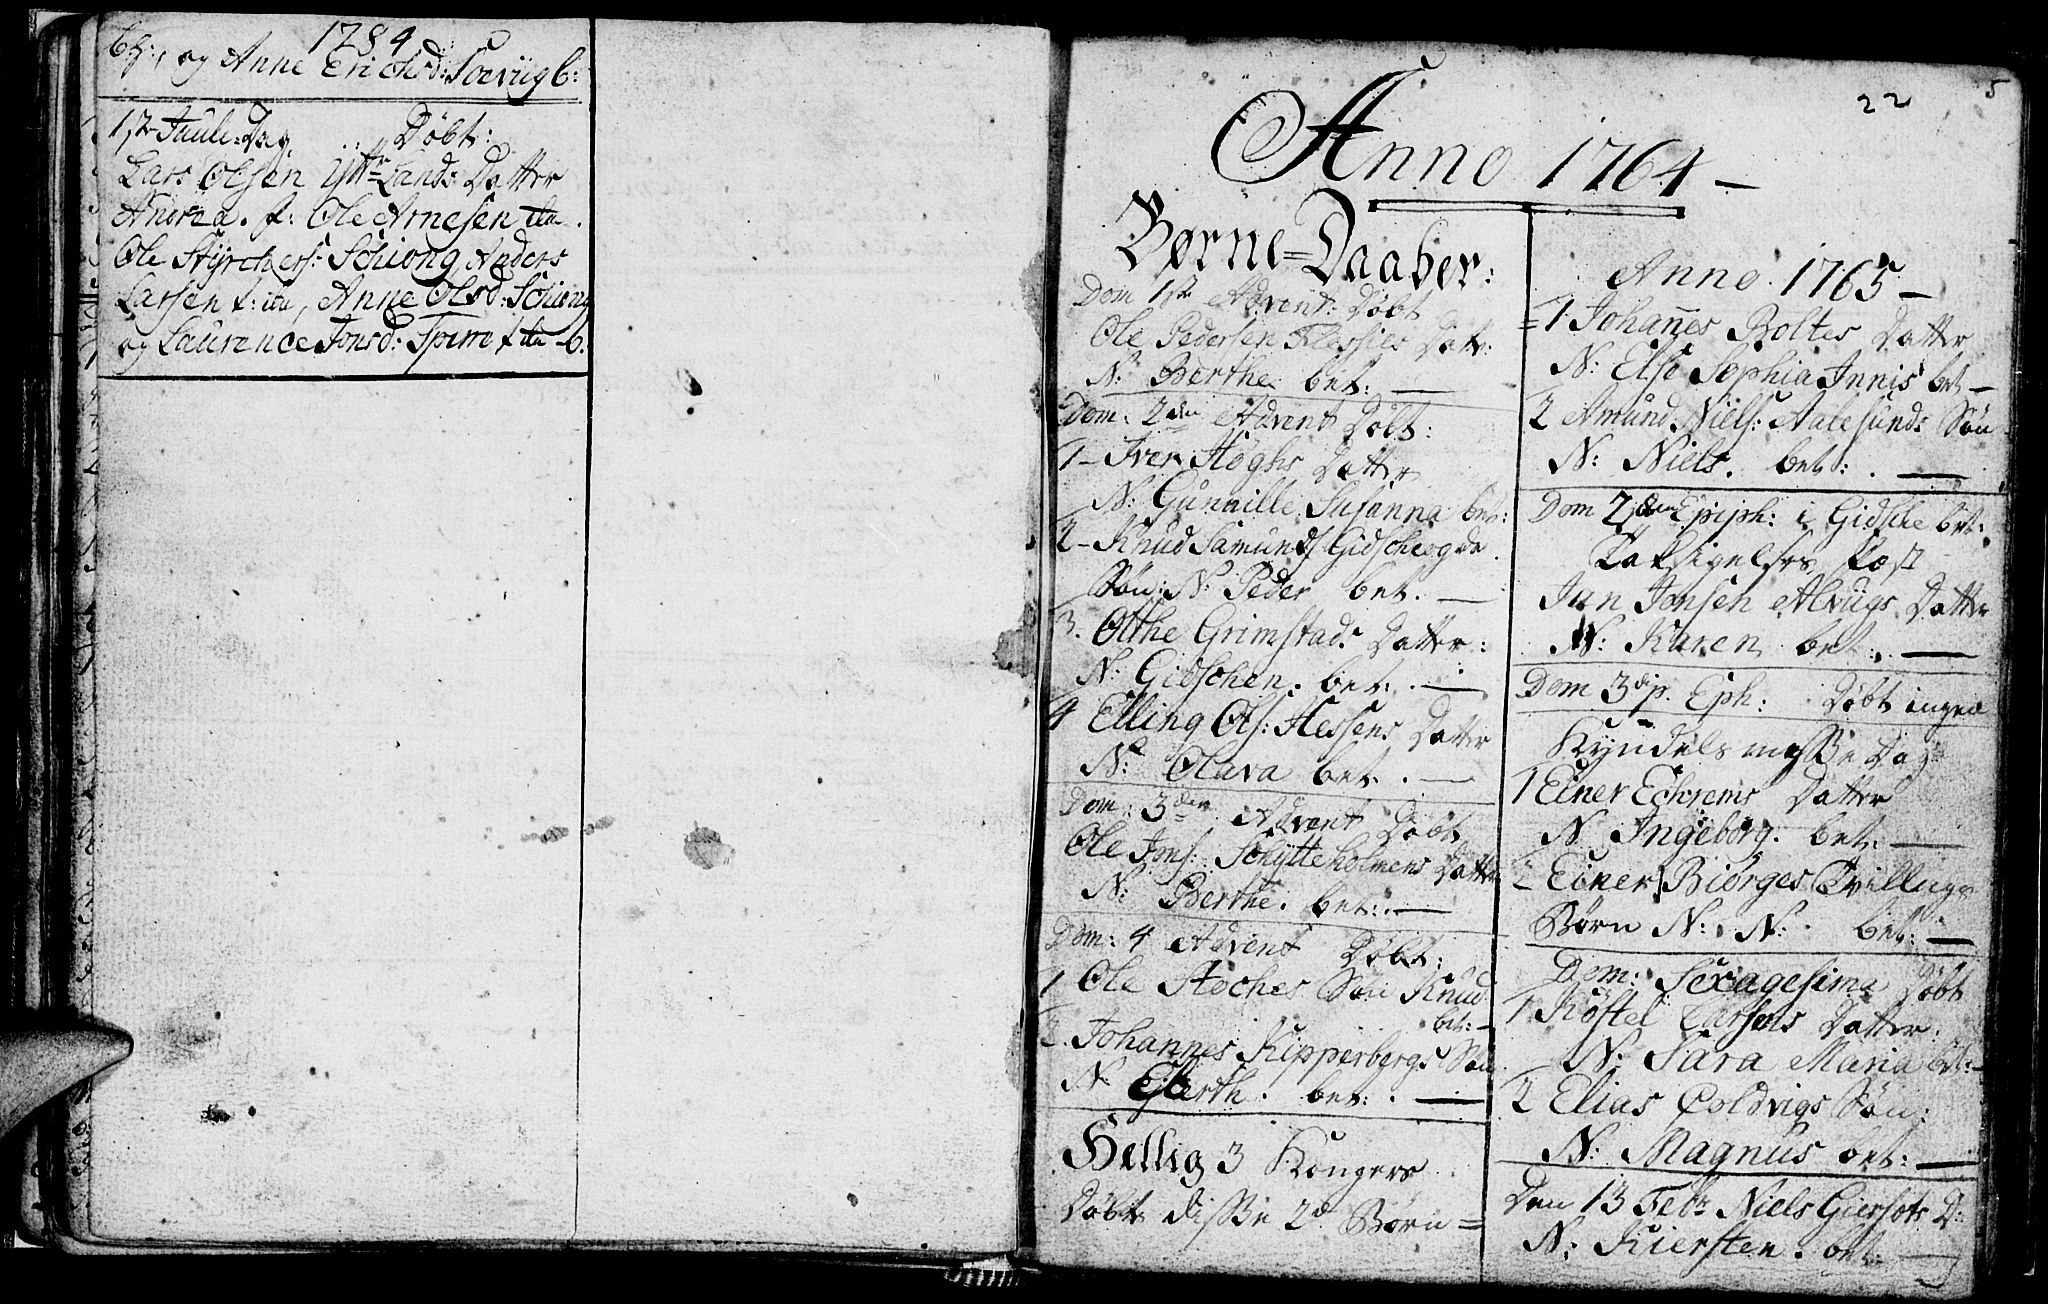 1784
og Anne Erichsd: Soevigb:
1ste Juule-Dag Døbt:
Lars Olsen Ytte Lands Datter
Andrea. f: Ole Arnesen ita.
Ole Styrchers: Schiong, Anders
Larsen f: ita, Anne Olsd: Schiong
og Laurence Jonsd: Spirre f ita b.
22 5
Anno 1764 —
Børne=Daaber:
Dom 1ste Advent: Døbt
Ole Pedersen Datt:
N: Berthe. bet: —
Dom: 2den Advent Døbt:
1 – Iver Høghs Datter
N: Gunnille Susanna bet:
2 – Knud Samunds Gidsche
Søn: N: Peder bet. —
3. Olthe Grimstads Datter:
N: Gidschen. bet: . —
4 Elling Ols: Hessens Datter
N: Olava bet: . —
Dom: 3den Advent Døbt
Ole Jons: Schytteholmens Datter
N: Berthe. bet: . —
Dom: 4 Advent Døbt:
1 Ole Stoches Søn Knud
bet: –
2. Johannes Kipperbergs Søn
N: bet: . —
Hellig 3 Kongers
Døbt disse 2de Børn =
Anno 1765 –
=1 Johañes Boltes Datter
N: Else Sophia Innis bet –
2 Amund Niels: Aalesunds Søn
N: Niels. bet: . —
Dom 2den Epiph: i Gidsche bet:
Taksigelses fæst
Jan Jonsen Alvugs Datter
N: Karen bet: . —
Dom 3die p. Eph: Døbt ingen
Kyndelsmesse Dag
1 Einer Echrems Datter
N. Ingeborg. bet: —
2 Einer Biørges Tvillings
Børn N: N: . bet: —
Dom: Sexagesima Døbt
1 Køstel Larsens Datter:
N: Sara Maria bet: –
2 Elias Coldvigs Søn:
N: Magnus bet: —
Den 13 Febr Niels D:
N: Kiersten. bet: —